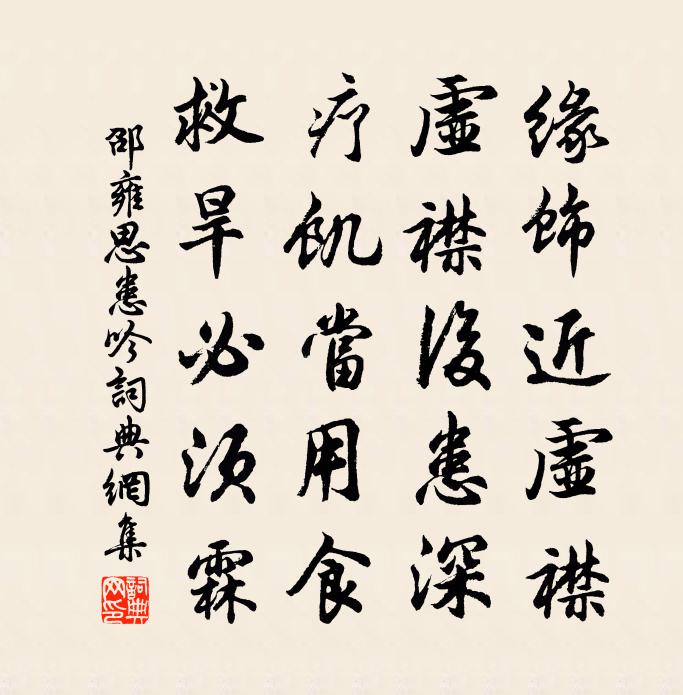 緣飾近虛襟
虛襟後患深
疗飢當用食
救旱必須霖
邵雍思患吟詞典網集
詞典网印